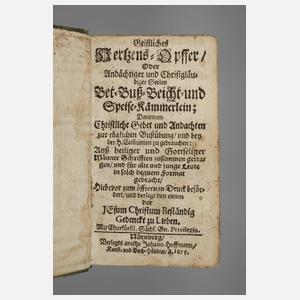 Geistliches
Hertzens-Opffer/
Oder
Andächtiger und Christgläu-
biger Seelen
Bet-Buß-Beicht-und
Speise-Kämmerlein;
Darinnen
Christliche Gebet und Andachten
zur täglichen Bußübung/ und bey
der H. Communion zu gebrauchen:
Auß heiliger und Gottseliger
Männer Schrifften zusammen getra-
gen/ und für alte und junge Leute
in solch bequem Format
gebracht/
Hiebevor zum öfftern in Druck beför-
dert/ und verlegt von einem
der
JEsum Christum Beständig
Gedenckt zu Lieben.
Mit Churfürstl. Sächs. Gn. Privilegio.
Nürnberg/
Verlegts anietzo Johann Hoffmann/
Kunst- und Buch-Händler/